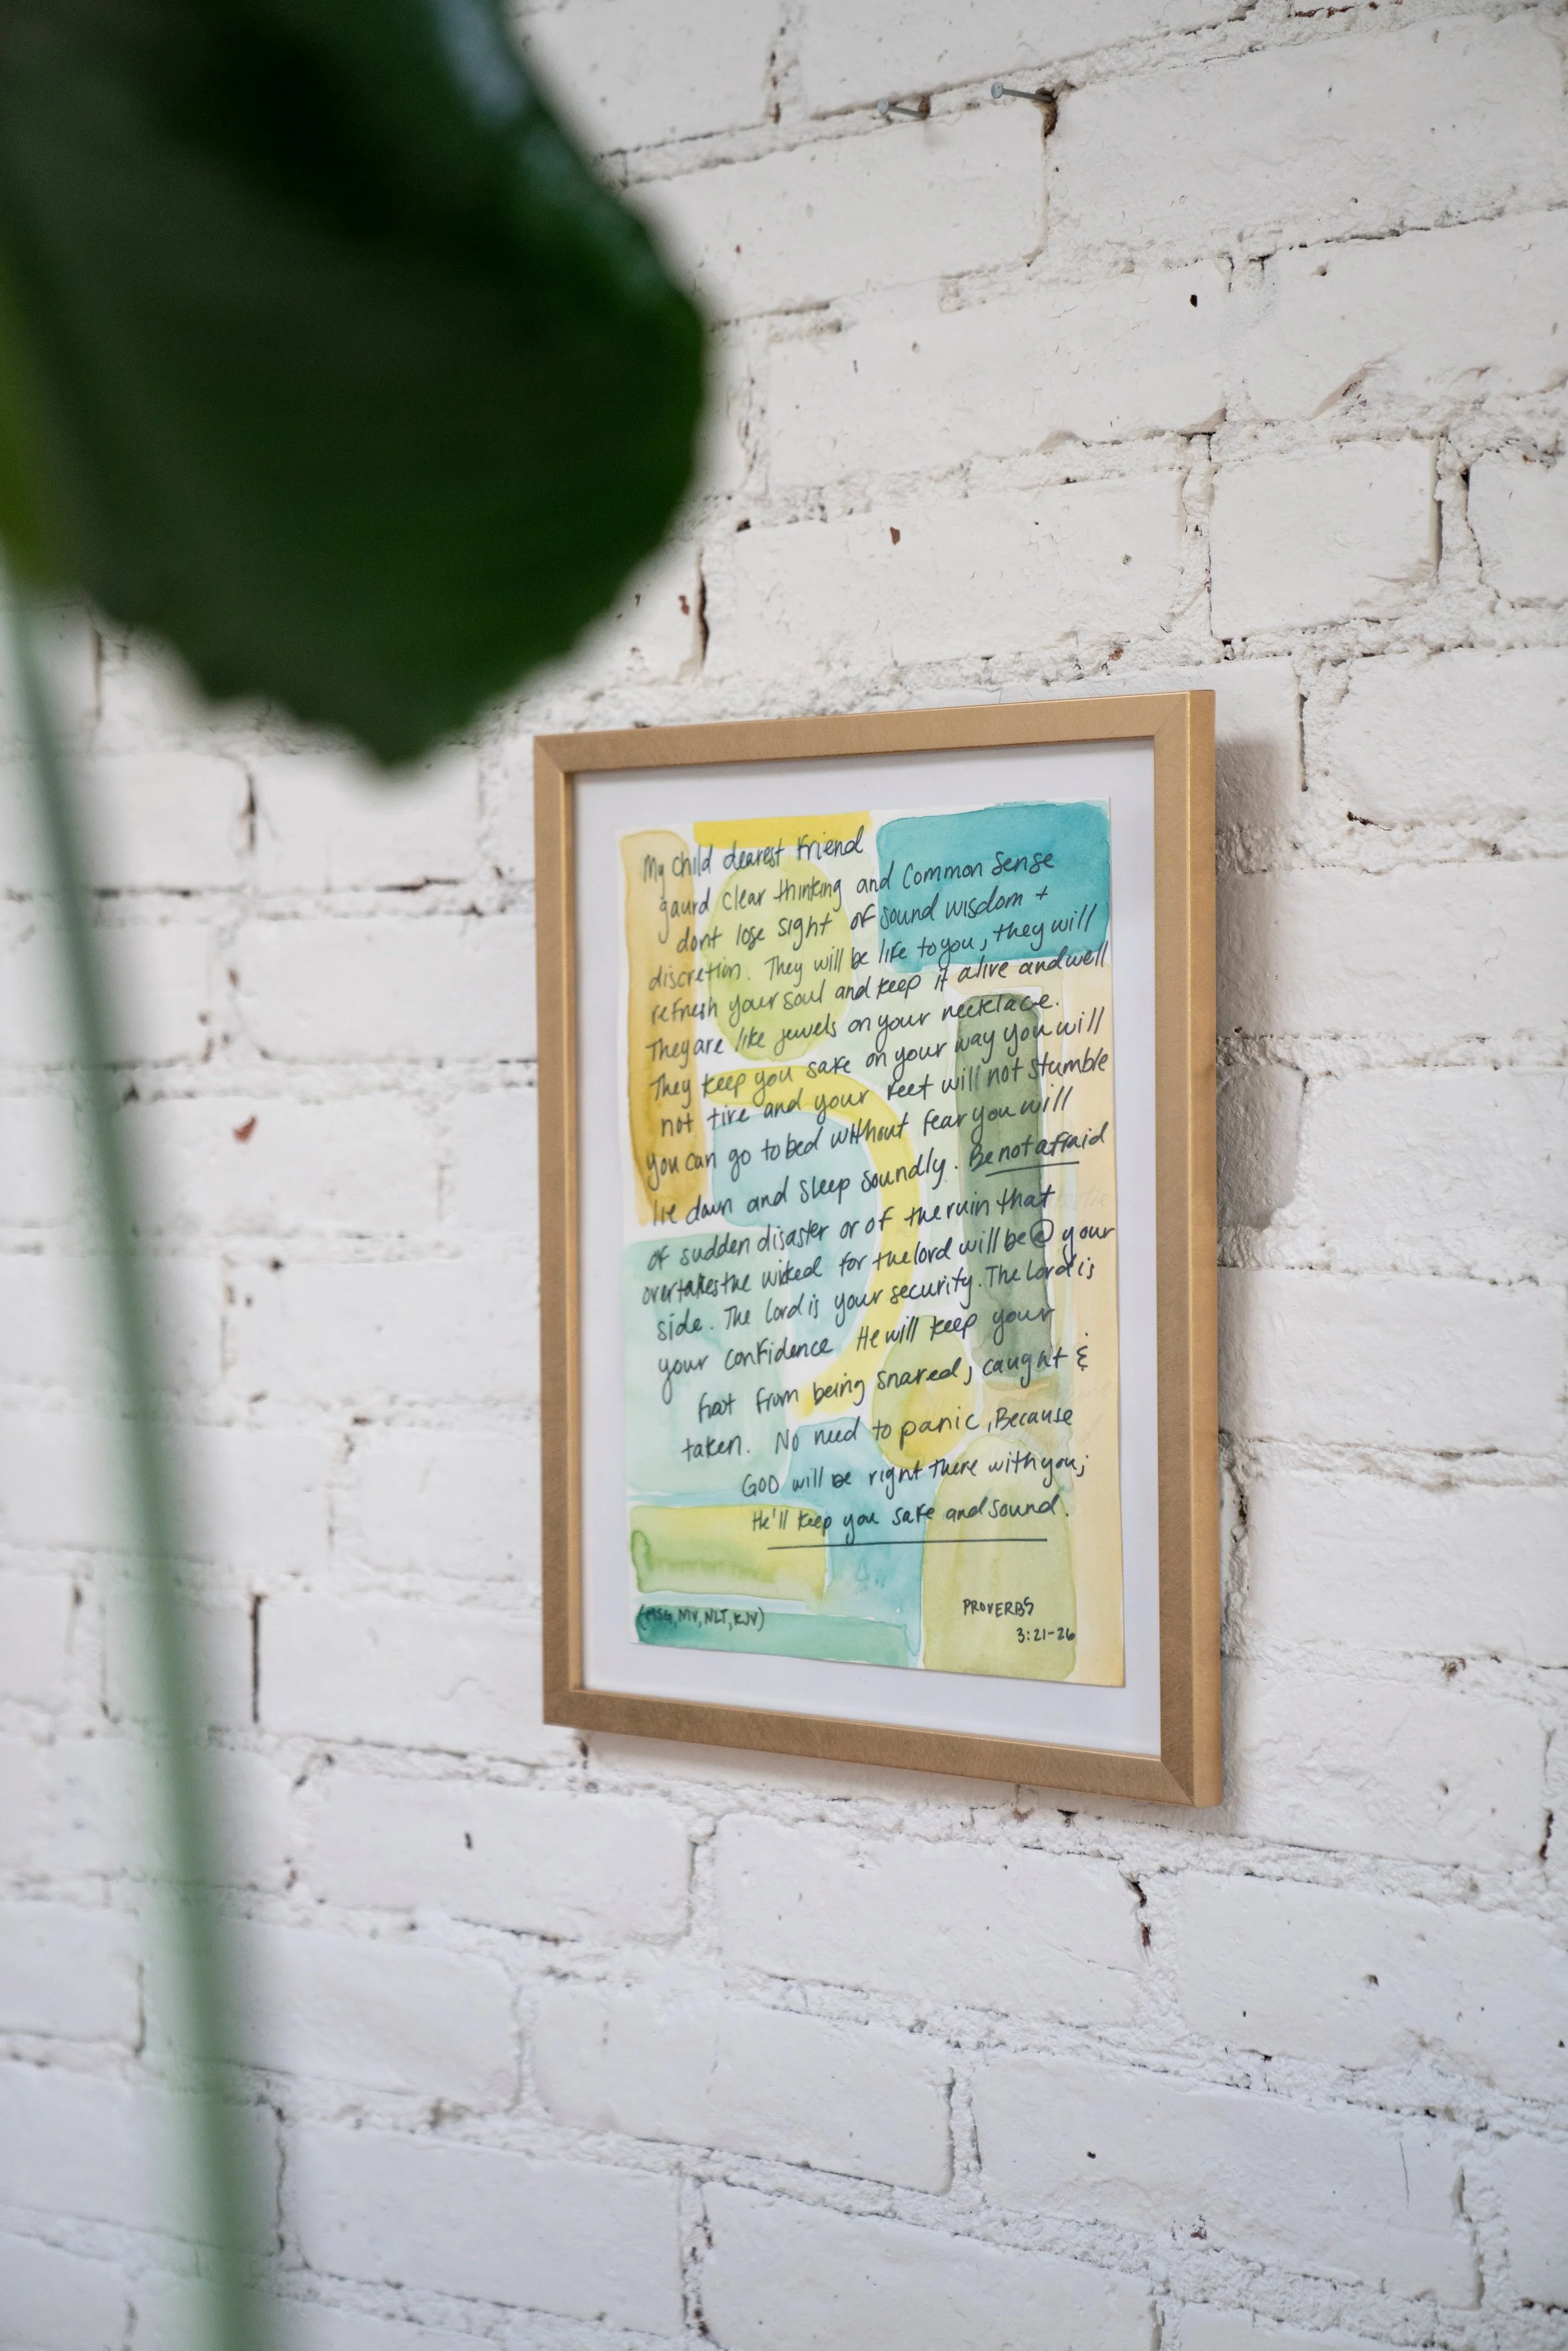 My child dearest friend
gaurd clear thinking and common sense
dont lose sight of sound wisdom +
discretion. They will be life to you, they will
refresh your soul and keep it alive and well
They are like jewels on your necklace.
They keep you safe on your way you will
not tire and your feet will not stumble
you can go to bed without fear you will
lie down and sleep soundly. Be not afraid
of sudden disaster or of the ruin that
overtakes the wicked for the lord will be @ your
side. The Lord is your security. The Lord is
your confidence He will keep your
foot from being snared, caught &
taken. No need to panic, Because
GOD will be right there with you;
He'll keep you safe and sound.
PROVERBS
3:21-26
(MSG, MV, NLT, KJV)